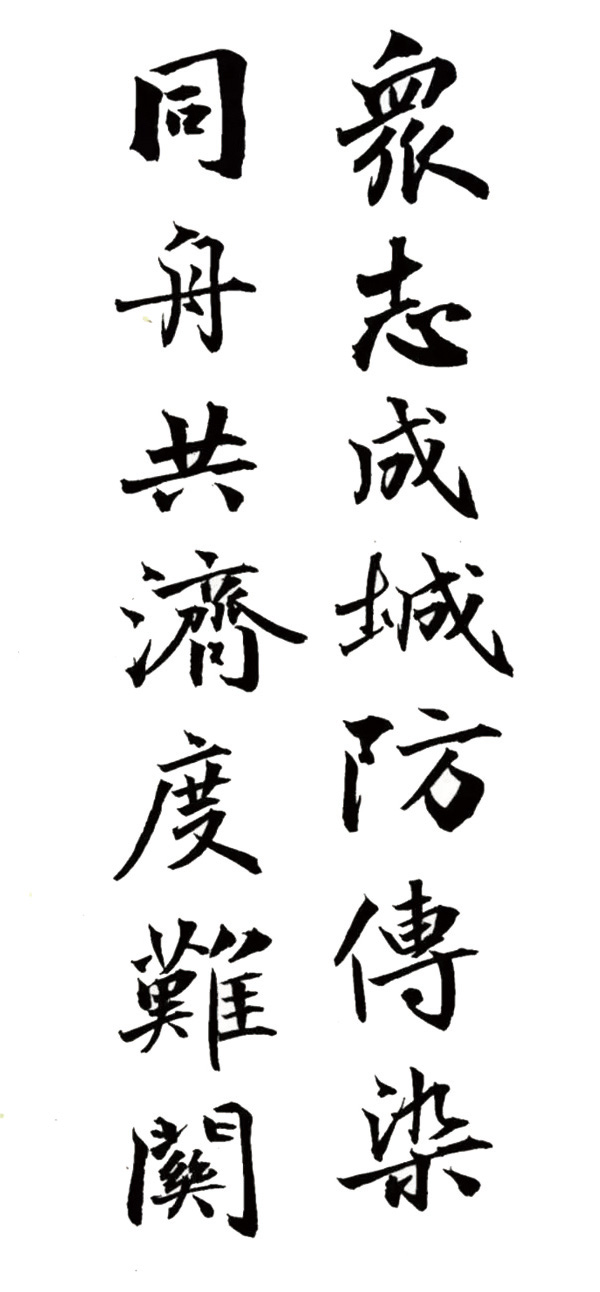 眾志成城防傳染
同舟共濟度難關